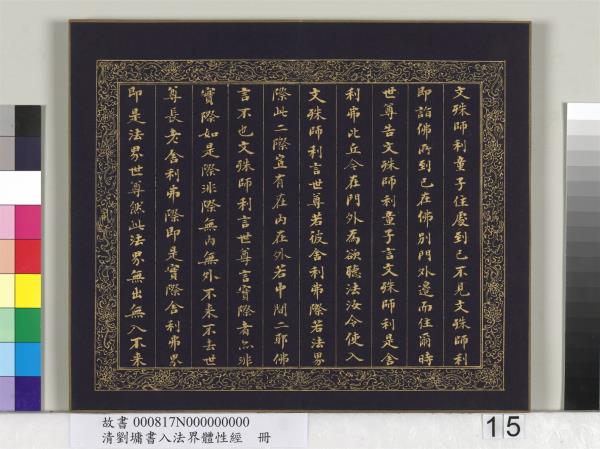 文殊師利童子住處到已不見文殊師利
即詣佛所到已在佛別門外邊而住爾時
世尊告文殊師利童子言文殊師利是舍
利弗比丘今在門外為欲聽法汝令使入
文殊師利言世尊若彼舍利弗際若法界
際此二際豈有在內在外若中間二耶佛
言不也文殊師利言世尊言實際者亦非
實際如是際非際無內無外不來不去世
尊長老舍利弗際即是實際舍利弗界
即是法界世尊然此法界無出無入不來
故書 000817N000000000
清劉墉書入法界體性經 冊
15